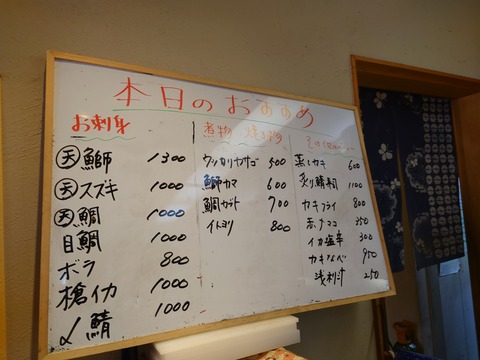 本日のおすすめ
お刺身
㊝鰤 1300
㊝スズキ 1000
㊝鯛 1000
目鯛 1000
ボラ 800
槍イカ 1000
〆鯖 1000
煮物 焼き物
ウッカリカサゴ 500
鰤カマ 600
鯛カブト 700
イトヨリ 800
その他
蒸しカキ 600
炙り鯖寿司 1100
カキフライ 800
赤ナマコ 350
イカ塩辛 300
カキなべ 950
浅利汁 250